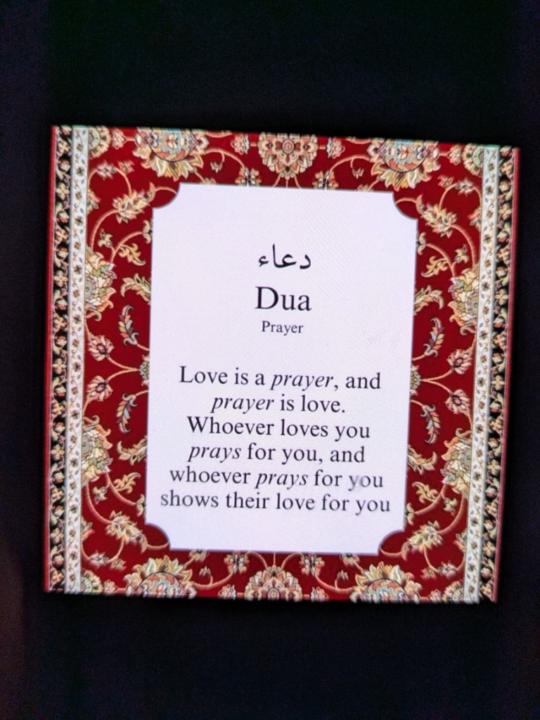 دعاء
Dua
Prayer
Love is a prayer, and
prayer is love.
Whoever loves you
prays for you, and
whoever prays for you
shows their love for you